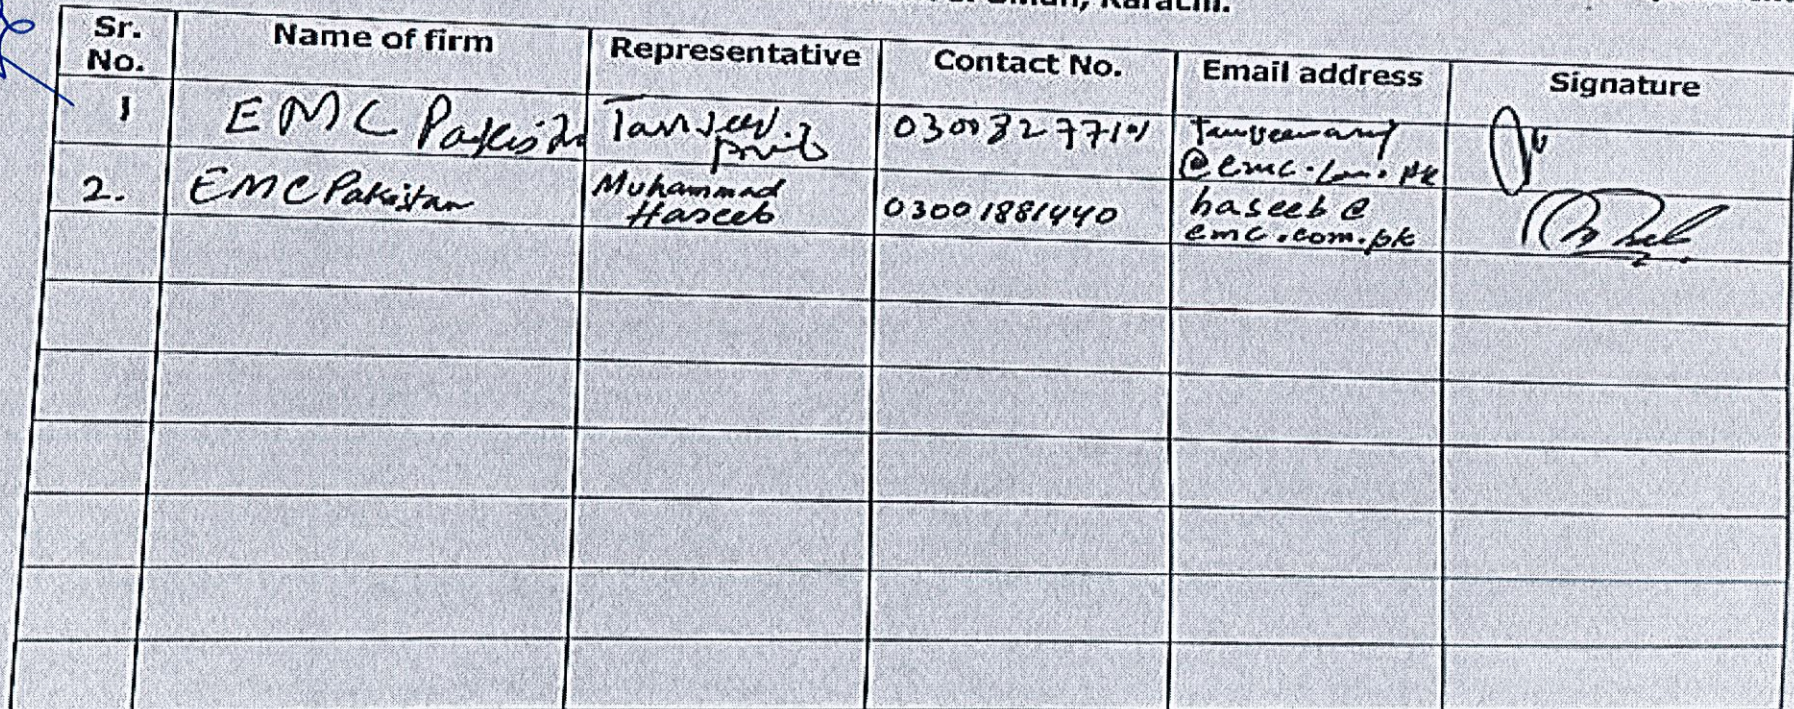 Karachi.
Sr. No. Name of firm Representative Contact No. Email address Signature
1 EMC Pakistan Tanveer
@emc.com.pk
2. EMC Pakistan Muhammad Haseeb 03001881440 haseeb@
emc.com.pk